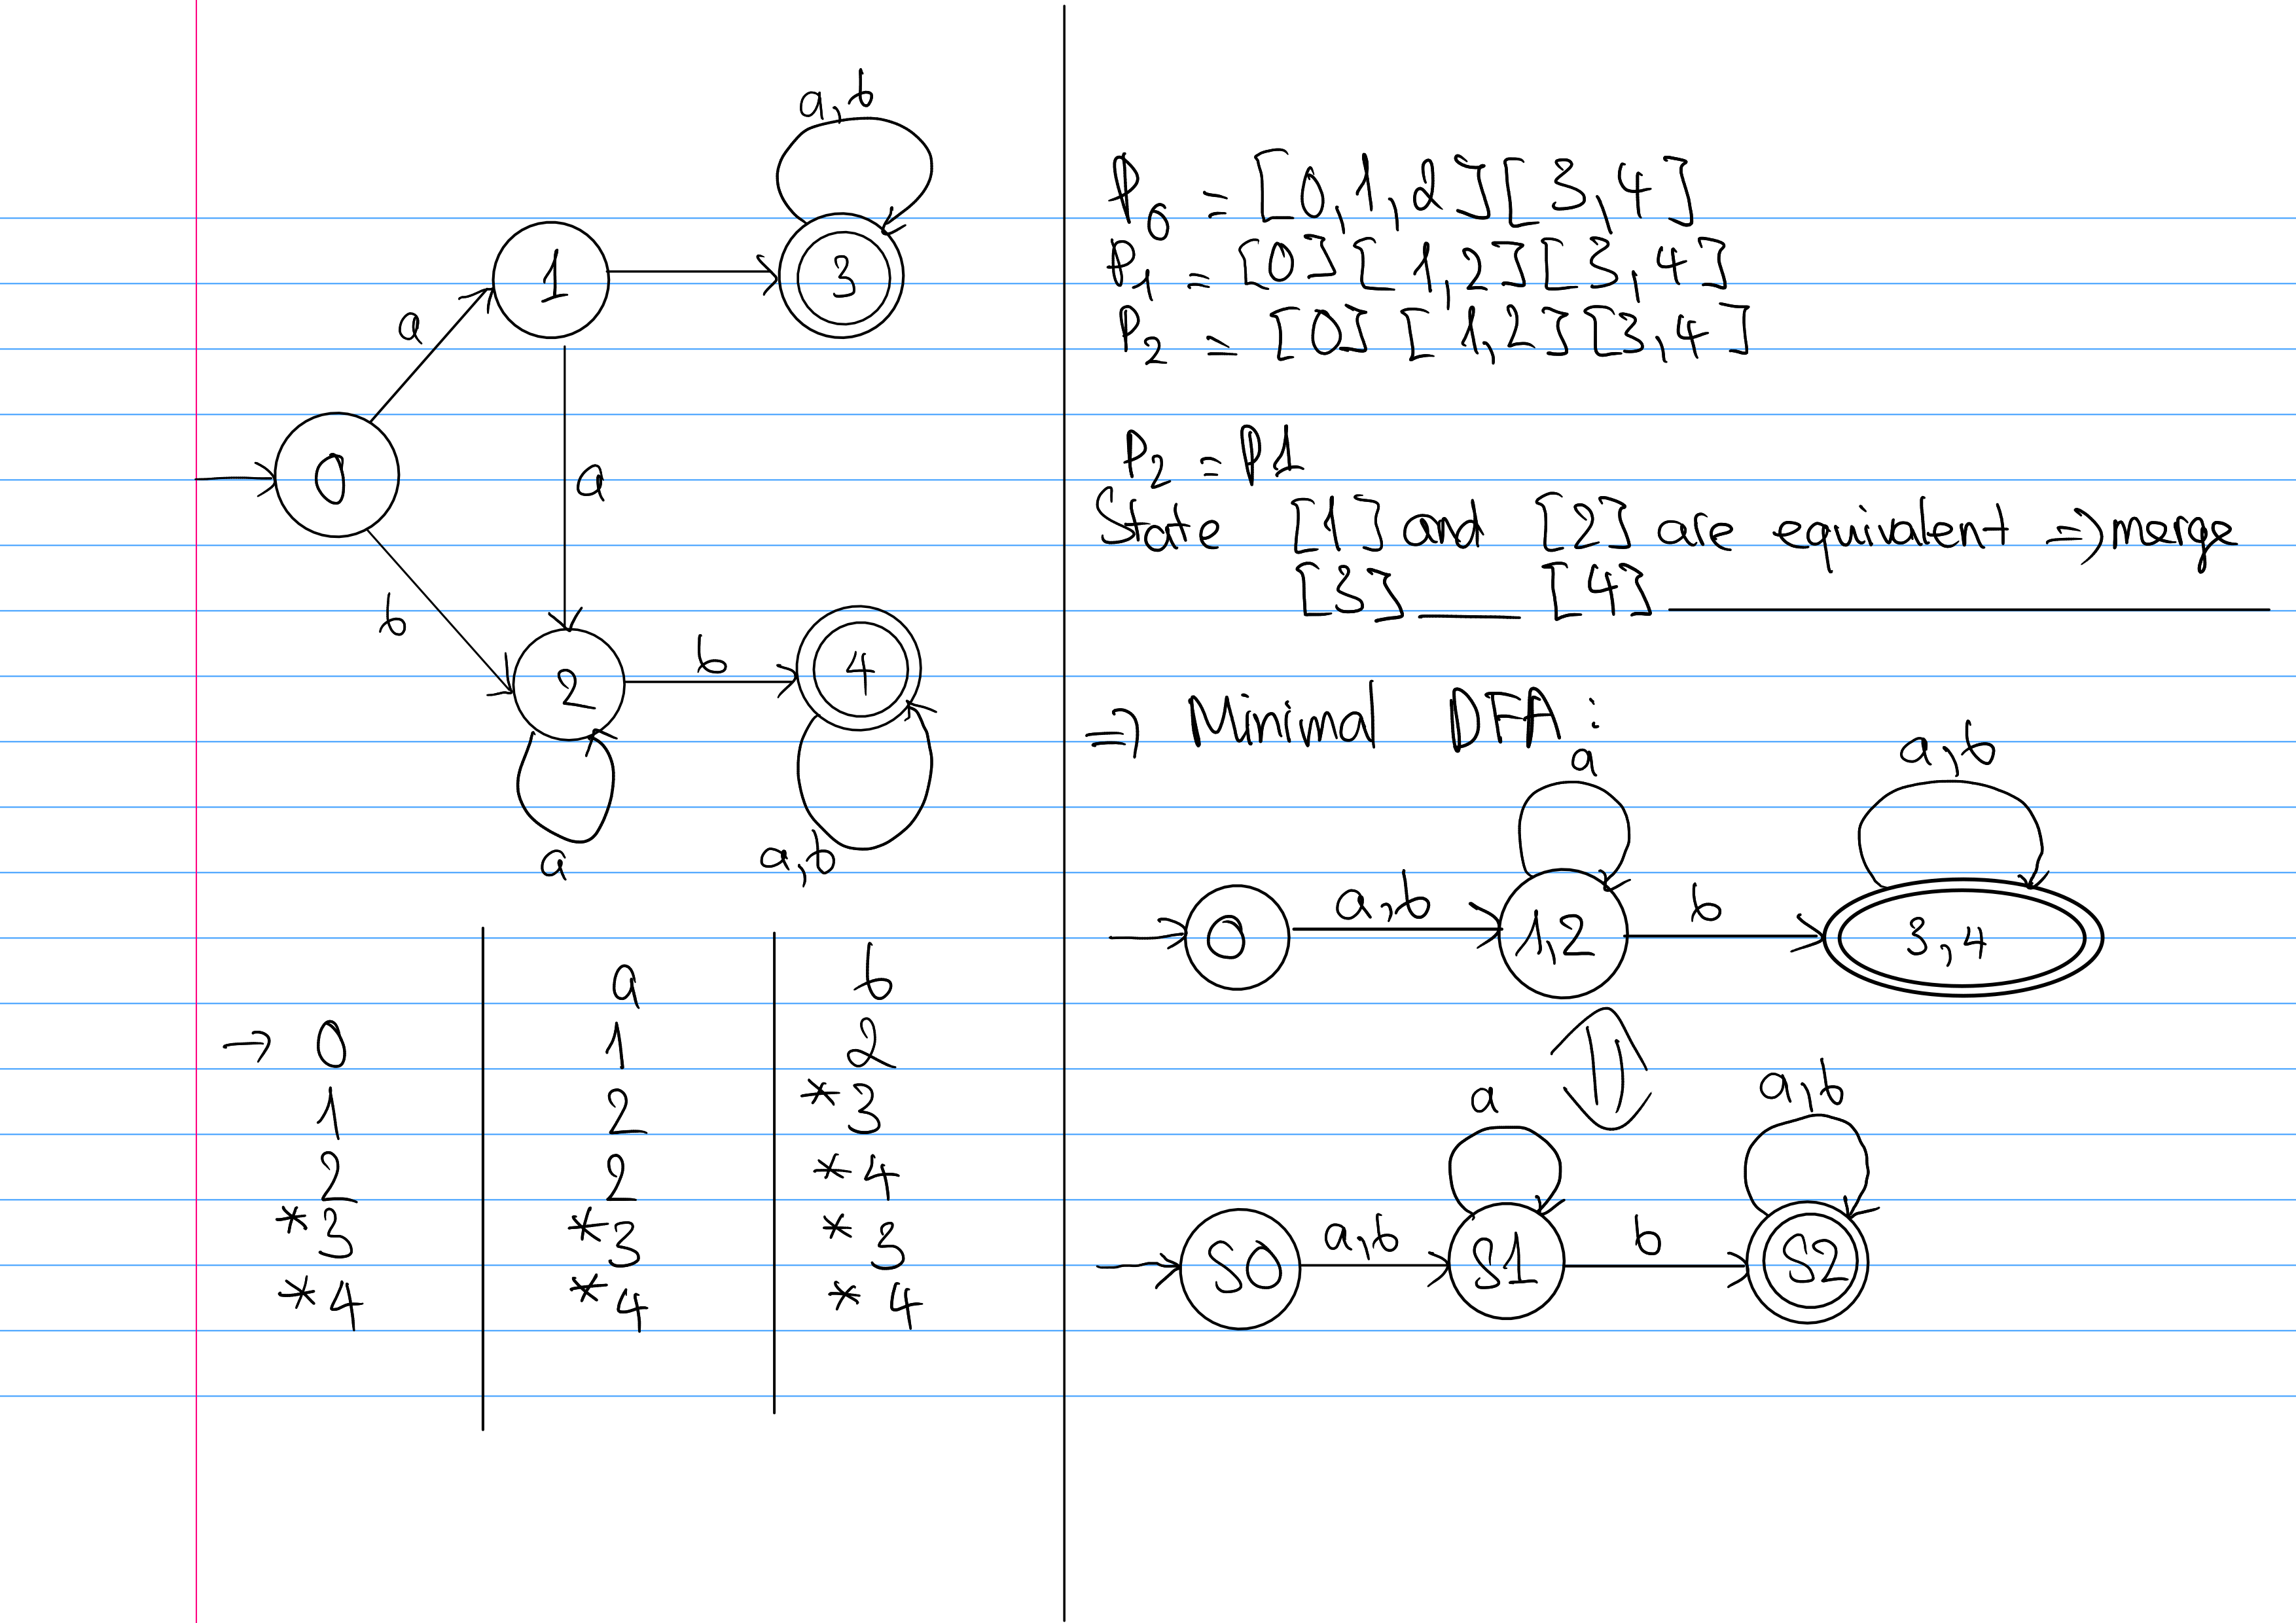 a,b
1
3
a
0
a
b
2
b
4
a
a,b
a b
→ 0 1 2
1 2 *3
2 2 *4
*3 *3 *3
*4 *4 *4
P0 = [0,1,2][3,4]
P1 = [0][1,2][3,4]
P2 = [0][1,2][3,4]
P2 = P1
State [1] and [2] are equivalent => merge
[3] ___ [4] ___________
=> Minimal DFA:
a a,b
0 a,b 1,2 b 3,4
a a,b
S0 a,b S1 b S2